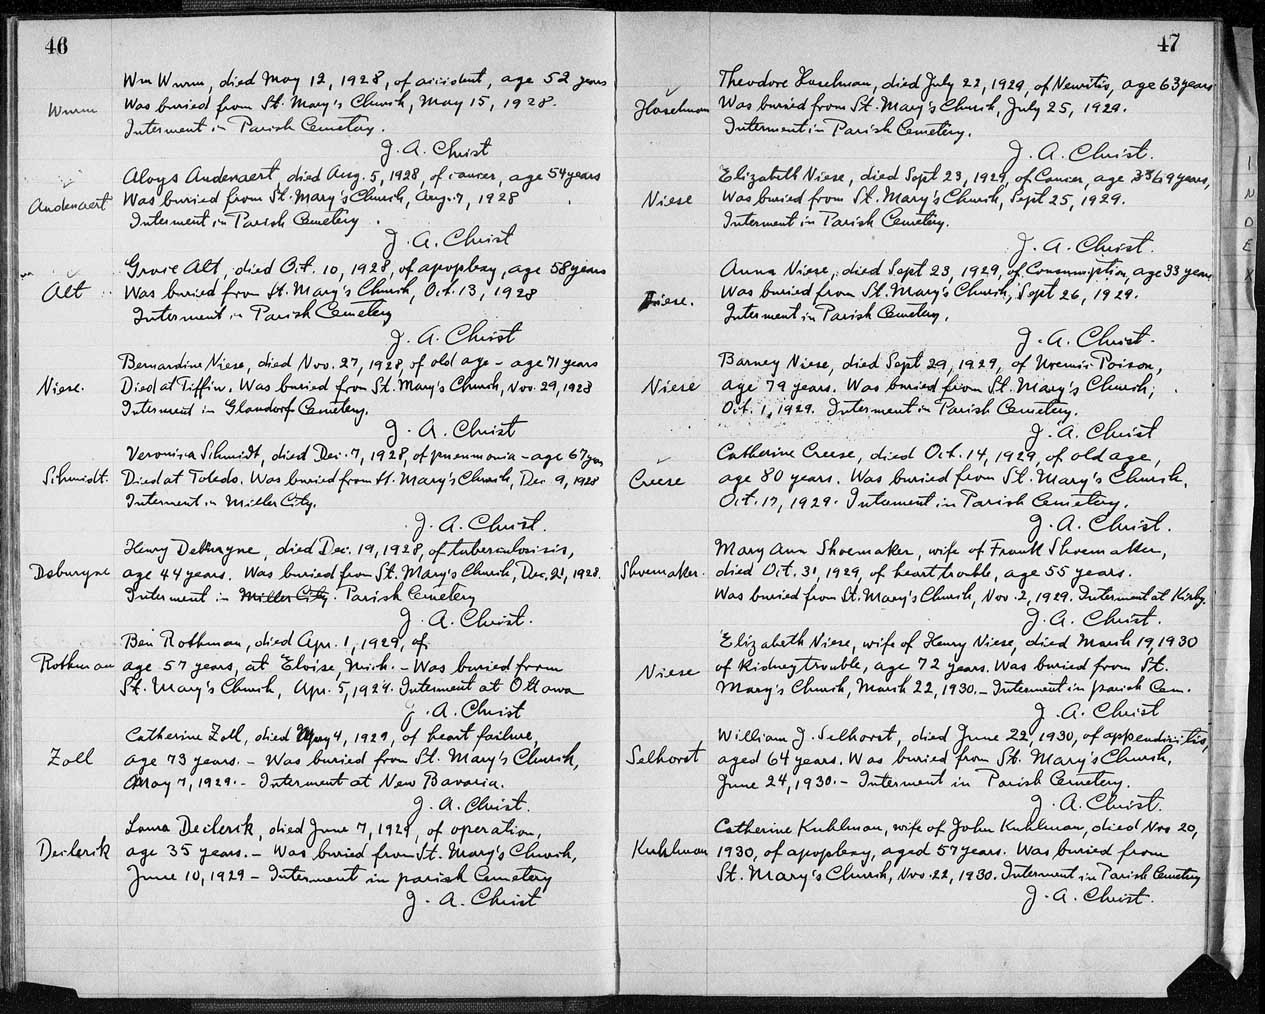 46
Wurm
Wm Wurm, died May 12, 1928, of accident, age 52 years
Was buried from St. Mary's Church, May 15, 1928.
Interment in Parish Cemetery.
J. A. Christ
Audenaert
Aloys Audenaert, died Aug. 5, 1928, of cancer, age 54 years
Was buried from St. Mary's Church, Aug. 7, 1928
Interment in Parish Cemetery.
J. A. Christ
Alt
Alt, died Oct. 10, 1928, of apoplexy, age 58 years
Was buried from St. Mary's Church, Oct. 13, 1928
Interment in Parish Cemetery
J. A. Christ
Niese.
Bernardine Niese, died Nov. 27, 1928, of old age - age 71 years
Died at Tiffin. Was buried from St. Mary's Church, Nov. 29, 1928
Interment in Glandorf Cemetery.
J. A. Christ
Schmidt.
Veronica Schmidt, died Dec. 7, 1928, of pneumonia - age 67 yrs
Died at Toledo. Was buried from St. Mary's Church, Dec 9, 1928
Interment in Miller City.
J. A. Christ.
Henry died Dec. 19, 1928, of tuberculosis,
age 44 years. Was buried from St. Mary's Church, Dec. 21, 1928.
Interment in Miller City. Parish Cemetery
J. A. Christ.
Rothman
Ben Rothman, died Apr. 1, 1929, of
age 57 years, at Eloise, Mich. - Was buried from
St. Mary's Church, Apr. 5, 1929. Interment at Ottawa
J. A. Christ
Zoll
Catherine Zoll, died May 4, 1929, of heart failure,
age 73 years. - Was buried from St. Mary's Church,
May 7, 1929. - Interment at New Bavaria.
J. A. Christ.
Declerik
Laura Declerik, died June 7, 1929, of operation,
age 35 years. - Was buried from St. Mary's Church,
June 10, 1929 - Interment in parish Cemetery
J. A. Christ
47
Haselman
Theodore Haselman, died July 22, 1929, of Neuritis, age 63 years
Was buried from St. Mary's Church, July 25, 1929.
Interment in Parish Cemetery.
J. A. Christ.
Niese
Elizabeth Niese, died Sept 23, 1929, of Cancer, age 69 years,
Was buried from St. Mary's Church, Sept 25, 1929.
Interment in Parish Cemetery.
J. A. Christ.
Niese.
Anna Niese, died Sept 23, 1929, of Consumption, age 33 years
Was buried from St. Mary's Church, Sept 26, 1929.
Interment in Parish Cemetery.
J. A. Christ.
Niese
Barney Niese, died Sept 29, 1929, of Uremic Poison,
age 79 years. Was buried from St. Mary's Church,
Oct. 1, 1929. Interment in Parish Cemetery.
J. A. Christ
Creese
Catherine Creese, died Oct. 14, 1929, of old age,
age 80 years. Was buried from St. Mary's Church,
Oct. 17, 1929. Interment in Parish Cemetery.
J. A. Christ.
Shoemaker.
Mary Ann Shoemaker, wife of Frank Shoemaker,
died Oct. 31, 1929, of heart trouble, age 55 years.
Was buried from St. Mary's Church, Nov. 2, 1929. Interment at Kirby.
J. A. Christ.
Niese
Elizabeth Niese, wife of Henry Niese, died March 19, 1930
of Kidney trouble, age 72 years. Was buried from St.
Mary's Church, March 22, 1930. - Interment in parish Cem.
J. A. Christ
Selhorst
William J. Selhorst, died June 22, 1930, of appendicitis,
aged 64 years. Was buried from St. Mary's Church,
June 24, 1930. - Interment in Parish Cemetery.
J. A. Christ.
Kuhlman
Catherine Kuhlman, wife of John Kuhlman, died Nov. 20,
1930, of apoplexy, aged 57 years. Was buried from
St. Mary's Church, Nov. 22, 1930. Interment in Parish Cemetery
J. A. Christ.
INDEX